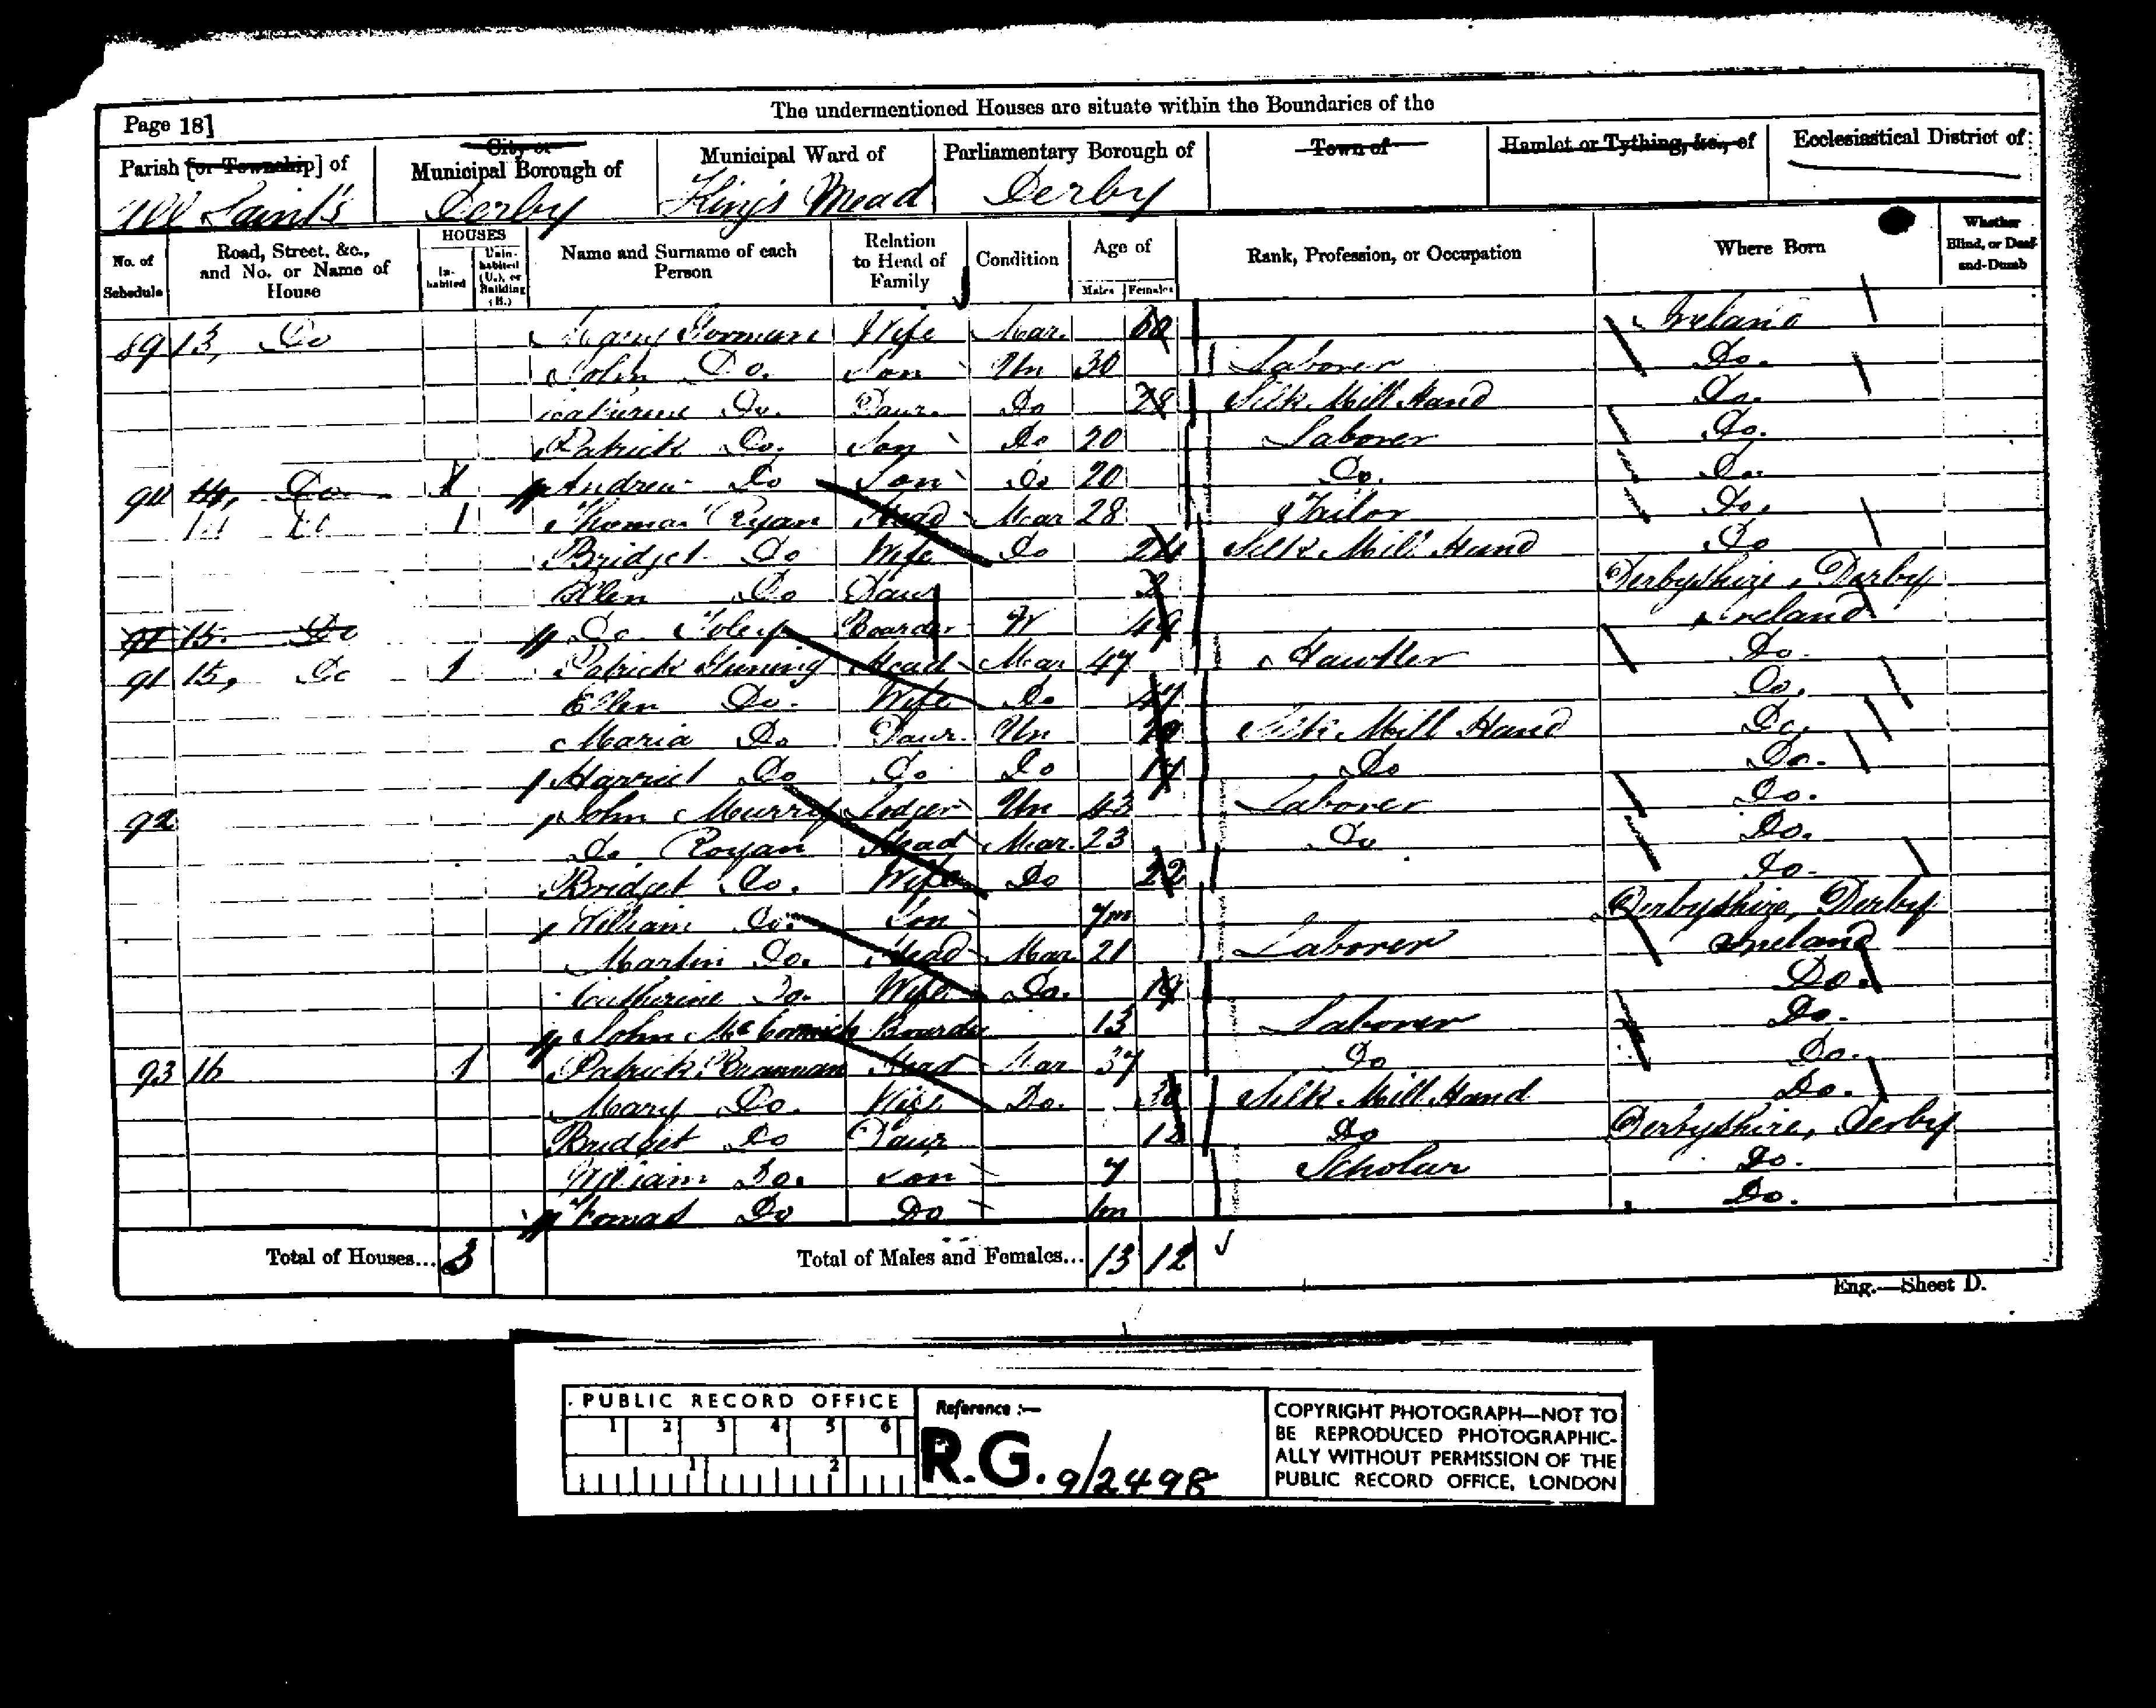 The undermentioned Houses are situate within the Boundaries of the
Page 18]
Parish [or Township] of
City or
Municipal Borough of
Municipal Ward of
Parliamentary Borough of
Town of
Hamlet or Tything, &c., of
Ecclesiastical District of
All Saint's
Derby
King's Mead
Derby
No. of Schedule
Road, Street, &c., and No. or Name of House
HOUSES
In-habited
Unin-habited (U.), or Building (B.)
Name and Surname of each Person
Relation to Head of Family
Condition
Age of
Males
Females
Rank, Profession, or Occupation
Where Born
Whether Blind, or Deaf-and-Dumb
89 13, Do Gorman Wife Mar. Ireland
John Do. Son Un 30 Laborer Do.
Catherine Do. Daur. Do 28 Silk Mill Hand Do.
Patrick Do. Son Do 20 Laborer Do.
90 14, Do 1 Andrew Do Son Do 20 Do. Do.
1 Thomas Ryan Head Mar 28 Do.
Bridget Do Wife Do 24 Silk Mill Hand Do
Ellen Do Daur 2 Derbyshire, Derby
91 15. Do Do Boarder W 49 Ireland
91 15, Do 1 Patrick Head Mar 47 Hawker Do.
Ellen Do. Wife Do 47 Do.
Maria Do Daur. Un Silk Mill Hand Do.
Harriet Do Do Do 17 Do Do.
92 John Murry Lodger Un 43 Laborer Do.
Do Royan Head Mar. 23 Do Do.
Bridget Do. Wife Do 22 Do.
William Do. Son 7m Derbyshire, Derby
Martin Do. Head Mar 21 Laborer Ireland
Catherine Do. Wife Do. 19 Do.
John McCormick Boarder 13 Laborer Do.
93 16 1 Patrick Brannan Head Mar 37 Do Do.
Mary Do. Wife Do. 30 Silk Mill Hand Do.
Bridget Do Daur 12 Do Derbyshire, Derby
William Do. Son 7 Scholar Do.
Tomas Do Do 1m Do.
Total of Houses... 3
Total of Males and Females... 13 12
Eng.—Sheet D.
PUBLIC RECORD OFFICE
1 2 3 4 5 6
1 2
Reference :—
R.G. 9/2498
COPYRIGHT PHOTOGRAPH—NOT TO
BE REPRODUCED PHOTOGRAPHIC-
ALLY WITHOUT PERMISSION OF THE
PUBLIC RECORD OFFICE, LONDON